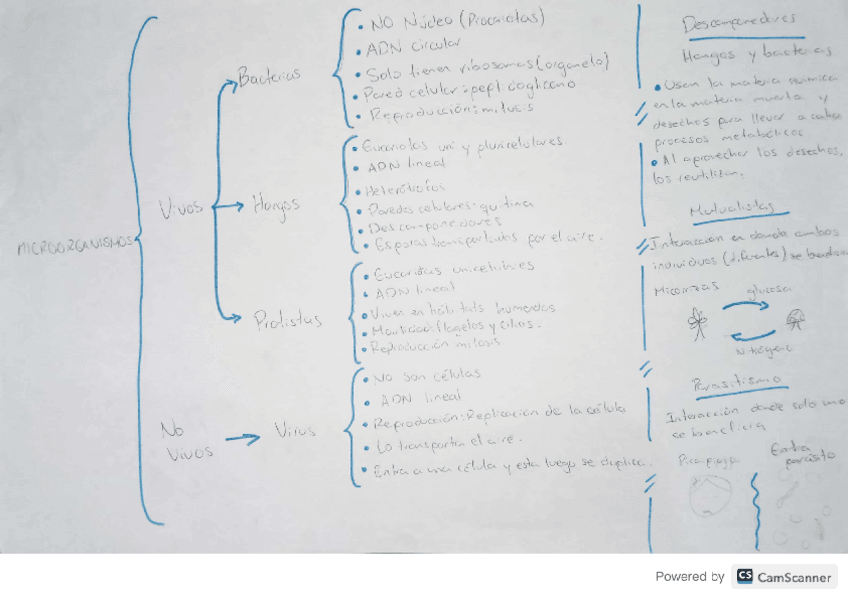 MICROORGANISMOS
Vivos
Bacterias
• NO Núcleo (Procariotas)
• ADN circular
• Solo tienen ribosomas (organelo)
• Pared celular: peptidoglicano
• Reproducción: mitosis
Hongos
• Eucariotas uni y pluricelulares
• ADN lineal
• Heterótrofos
• Paredes celulares: quitina
• Descomponedores
• Esporas transportadas por el aire.
Protistas
• Eucariotas unicelulares
• ADN lineal
• Viven en hábitats humedos
• Movilidad: flagelos y cilios.
• Reproducción mitosis
No
Vivos
Virus
• No son células
• ADN lineal
• Reproducción: Replicación de la célula
• Lo transporta el aire.
• Entra a una célula y esta luego se duplica.
Descomponedores
Hongos y bacterias
• Usan la materia química
en la materia muerta y
desechos para llevar a cabo
procesos metabólicos.
• Al aprovechar los desechos,
los reutilizan.
Mutualistas
Interacción en donde ambos
individuos (diferentes) se
Micorrizas
glucosa
Nitrógeno
Parasitismo
Interacción donde solo uno
se beneficia
Entra
parásito
Powered by CS CamScanner